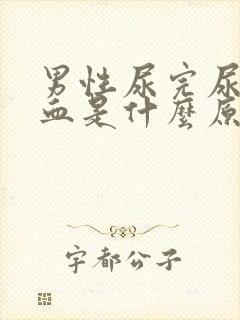 男性尿完尿
血是什麼原
宇都公子